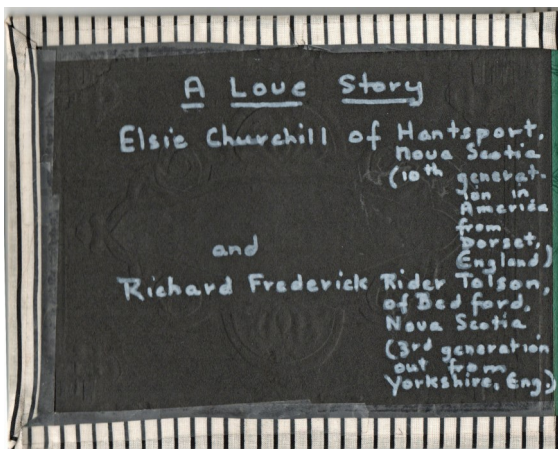 A Love Story
Elsie Churchill of Hantsport,
Nova Scotia
(10th generat-
ion in
America
from
Dorset,
England)
and
Richard Frederick Rider Tolson,
of Bedford,
Nova Scotia
(3rd generation
out from
Yorkshire, Eng.)